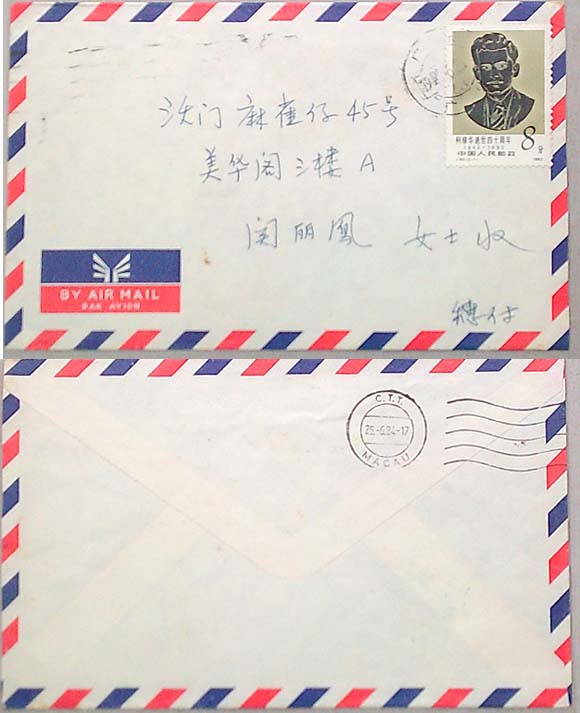 柯棣华逝世四十周年
1942-1982
8分
中国人民邮政
1982
汰门麻雀仔45号
美华阁三楼A
闵丽凤 女士收
穗付
BY AIR MAIL
PAR AVION
C.T.T.
25.-6.84-17
MACAU